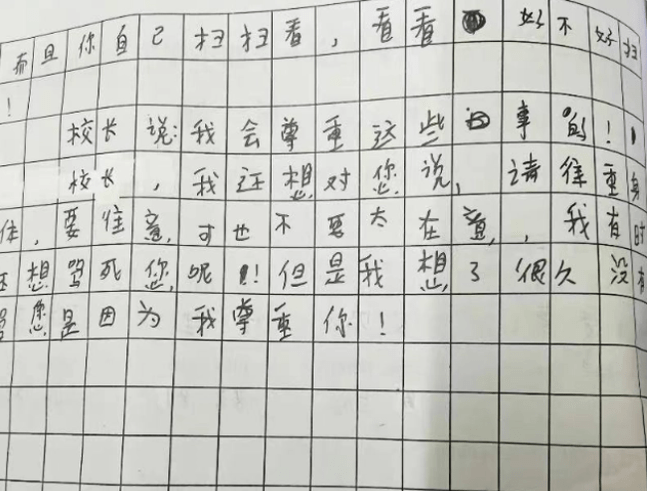 而且你自己扫扫看，看看好不好扫
！
校长说：我会尊重这些事的！
校长，我还想对您说，请注重身
体，要注意，可也不要太在意，我有时
还想骂死您呢！但是我想了很久没有
骂您是因为我尊重你！